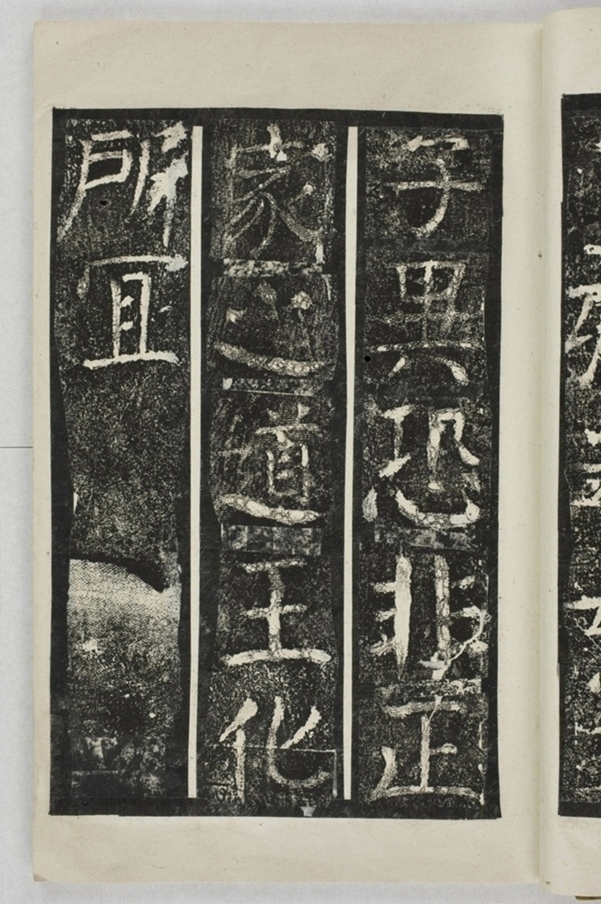 子異恐非正
家之道王化
所宜